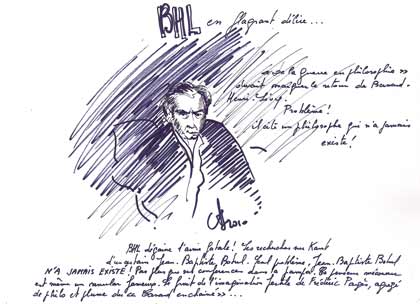 BHL en flagrant délire...
"de la guerre en philosophie"
devait marquer le retour de Bernard-
Henri-Lévy.
Problème!
il cite un philosophe qui n'a jamais
existé!
BHL dégaine l'arme fatale! Les recherches sur Kant
d'un certain Jean-Baptiste Botul. Seul problème, Jean-Baptiste Botul
N'A JAMAIS EXISTÉ! Pas plus que ses conférences dans la pampa.
est même un canular fameux. Le fruit de l'imagination fertile de Frédéric Pagès, agrégé
de philo et plume du "Canard enchaîné"...